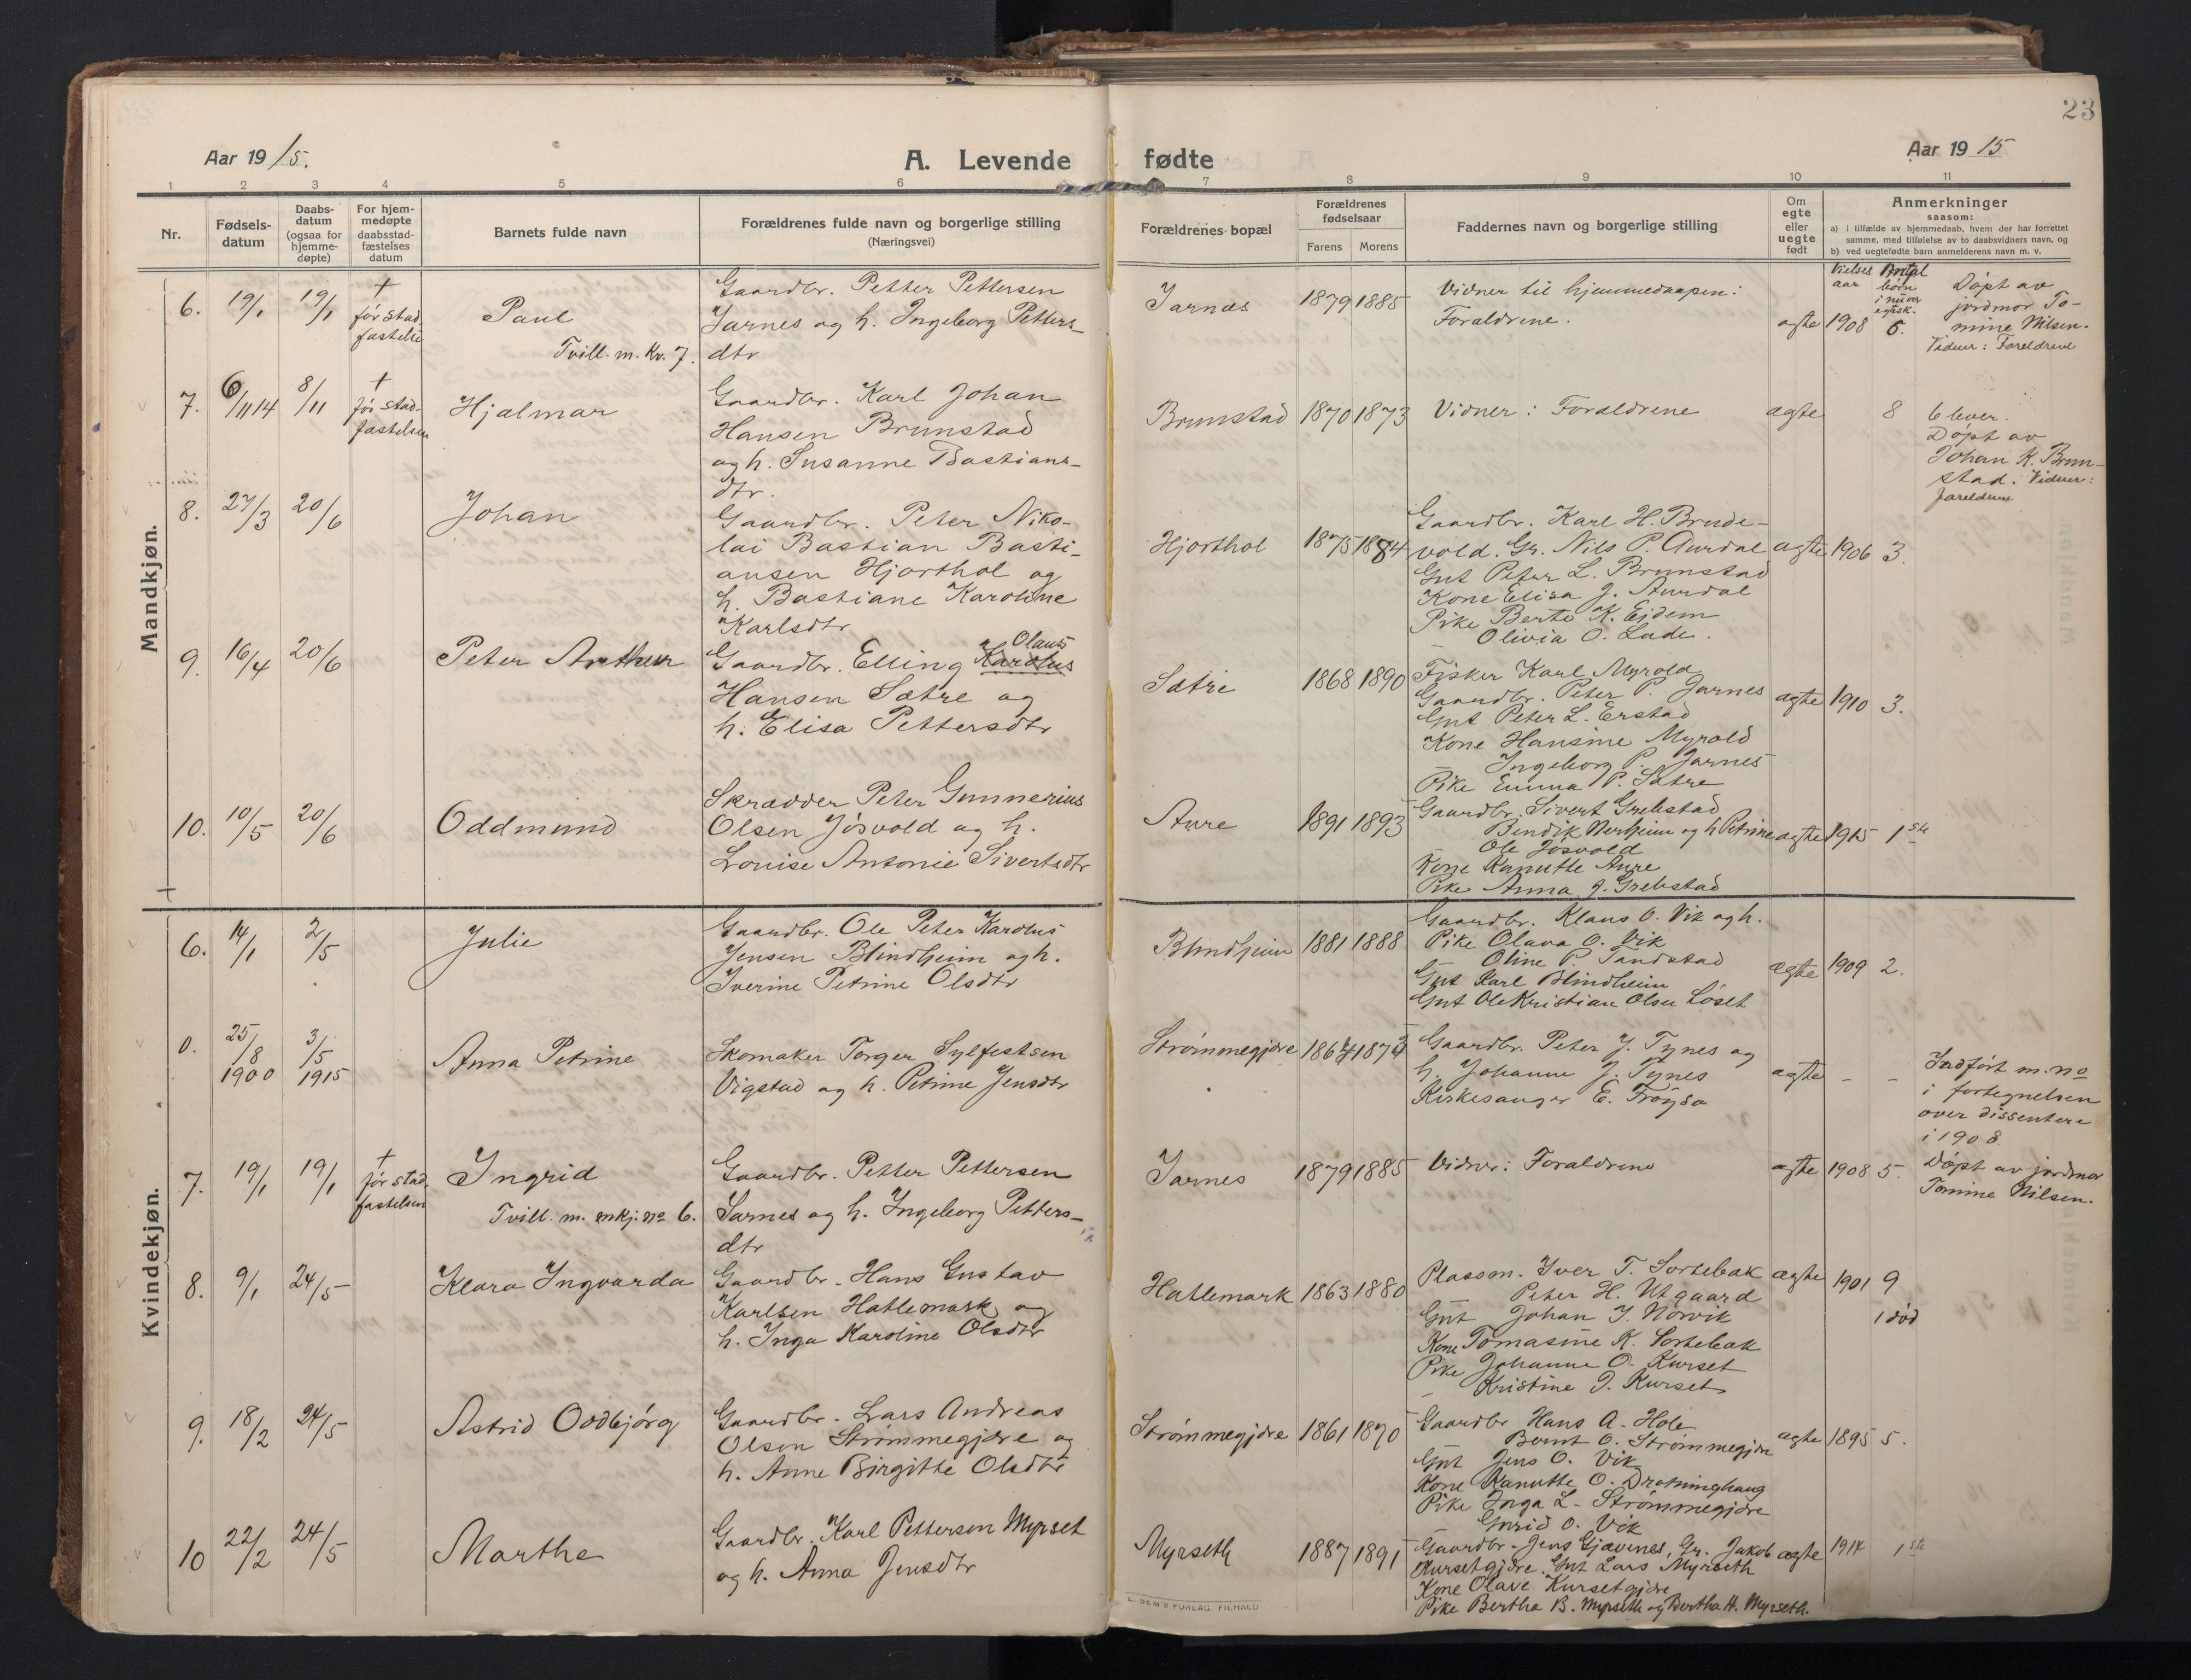 23
Aar 19 15.
A. Levende fødte
Aar 19 15
1 2 3 4 5 6 7 8 9 10 11
Nr.
Fødsels-
datum
Daabs-
datum
(ogsaa for
hjemme-
døpte)
For hjem-
medøpte
daabsstad-
fæstelses
datum
Barnets fulde navn
Forældrenes fulde navn og borgerlige stilling
(Næringsvei)
Forældrenes bopæl
Forældrenes
fødselsaar
Farens Morens
Faddernes navn og borgerlige stilling
Om
egte
eller
uegte
født
Anmerkninger
saasom:
a) i tilfælde av hjemmedaab, hvem der har forrettet
samme, med tilføielse av to daabsvidners navn, og
b) ved uegtefødte barn anmelderens navn m. v.
Mandkjøn.
6. 19/1 19/1 † før stad
fæstelse
Paul
Tvill. m. Kv. 7.
Gaardbr. Petter Pettersen
Jarnes og h. Ingeborg Petters-
dtr
Jarnes 1879 1885
Vidner til hjemmedaapen:
Foraldrene.
agte 1908 5.
Vielses
aar
Antal
børn
i nuvær
egtesk.
Døpt av
jordmor To-
mine Nilsen.
Vidner: Foreldrene
7. 6/11 14 8/11 † før stad-
fæstelsen
Hjalmar
Gaardbr. Karl Johan
Hansen Brunstad
og h. Susanne Bastians-
dtr.
Brunstad 1870 1873
Vidner: Foraldrene
agte 8
6 lever.
Døpt av
Johan K. Brun-
stad. Vidner:
Foreldrene
8. 27/3 20/6
Johan
Gaardbr. Peter Niko-
lai Bastian Basti-
ansen Hjorthol og
h. Bastiane Karoline
Karlsdtr
Hjorthol 1875 1884
Gaardbr. Karl H. Brude-
vold. Gr. Nils P. Aurdal
Gut Peter L. Brunstad
Kone Elisa J. Aurdal
Pike Berte K. Eidem
Olivia O. Lade.
agte 1906 3.
9. 16/4 20/6
Peter Arthur
Olaus
Gaardbr. Elling Karolus
Hansen Sætre og
h. Elisa Pettersdtr
Sætre 1868 1890
Fisker Karl Myrold
Gaardbr. Peter P. Jarnes
Gut Peter L. Erstad
Kone Hansine Myrold
Ingeborg P. Jarnes
Pike Emma P. Sætre
agte 1910 3.
10. 10/5 20/6
Oddmund
Skrædder Peter Gunnerius
Olsen Jøsvold og h.
Louise Antonie Sivertsdtr
Aure 1891 1893
Gaardbr. Sivert Grebstad
Bendik Nerheim og h Petrine
Ole Jøsvold
Kone Kanutte Aure
Pike Anna J. Grebstad
agte 1915 1ste
Kvindekjøn.
6. 14/1 2/5
Julie
Gaardbr. Ole Peter Karolus
Jensen Blindheim og h.
Iverine Petrine Olsdtr
Blindheim 1881 1888
Gaardbr. Klaus O. Vik og h.
Pike Olava O. Vik
Oline P. Tandstad
Gut Karl Blindheim
Gut Ole Kristian Olsen Løset
ægte 1909 2.
0. 25/8 1900 3/5 1915
Anna Petrine
Skomaker Torger Sylfestsen
Vigstad og h. Petrine Jensdtr
Strømmegjære
Gaardbr. Peter J. Tynes og
h. Johanne J. Tynes
Kirkesanger E. Frøysa
agte - -
Indført m. no
i fortegnelsen
over dissentere
i 1908.
7. 19/1 19/1 † før stad
fæstelsen
Ingrid
Tvill. m. mkj. no 6.
Gaardbr. Petter Pettersen
Jarnes og h. Ingeborg Petters-
dtr
Jarnes 1879 1885
Vidner: Foraldrene
agte 1908 5.
Døpt av jordmor
Tomine Nilsen.
8. 9/1 24/5
Klara Ingvarda
Gaardbr. Hans Gustav
Karlsen Hatlemark og
h. Inga Karoline Olsdtr
Hatlemark 1863 1880
Plassm. Iver T. Sortebak
Peter H. Utgaard
Gut Johan J. Norvik
Kone Tomasine K. Sortebak
Pike Johanne O. Kurset
Kristine J. Kurset
ægte 1901 9
1 død
9. 18/2 24/5
Astrid Oddbjørg
Gaardbr. Lars Andreas
Olsen Strømmegjære og
h. Anne Birgitte Olsdtr
Strømmegjære 1861 1870
Gaardbr Hans A. Hole
Bernt O. Strømmegjære
Gut Jens O. Vik
Kone Kanutte O. Drotninghaug
Pike Inga L. Strømmegjære
Gurid O. Vik
agte 1895 5.
10 22/2 24/5
Marthe
Gaardbr. Karl Pettersen Myrset
og h. Anna Jensdtr
Myrseth 1887 1891
Gaardbr. Jens Gjævenes, Gr. Jakob
Kursetgjære. Gut Lars Myrseth
Kone Olave Kursetgjære
Pike Bertha B. Myrseth og Bertha H. Myrseth.
ægte 1914 1ste
E. SEM'S FORLAG, FR.HALD